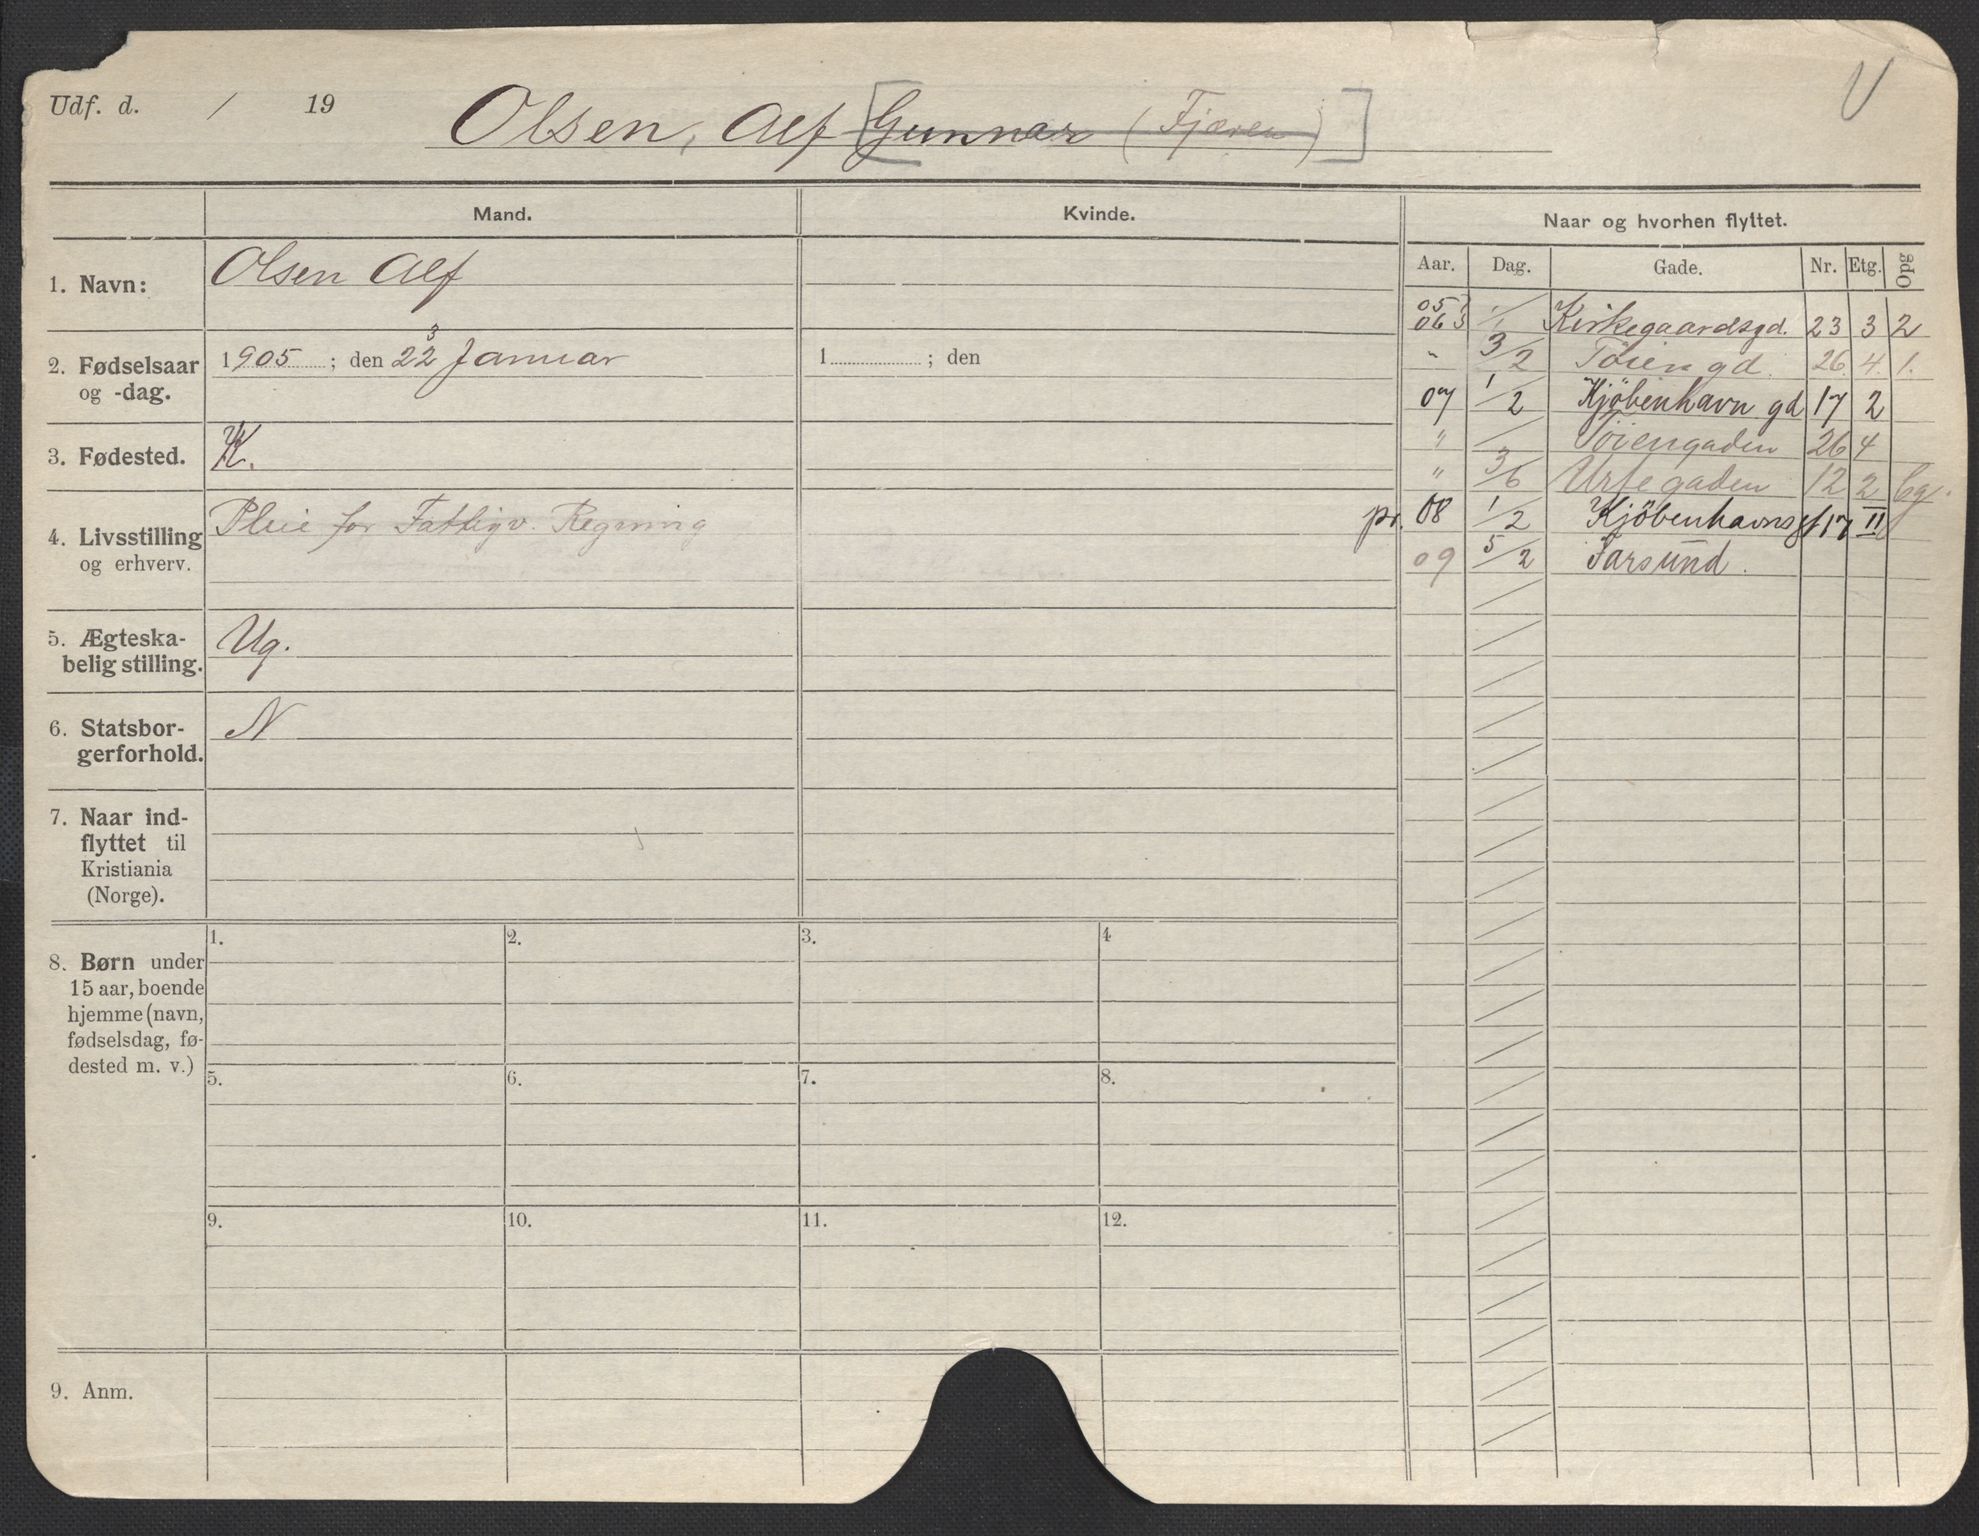 Udf. d. / 19
Olsen, Alf [Gunnar (Fjæren)]
Mand.
Kvinde.
Naar og hvorhen flyttet.
Aar. Dag. Gade. Nr. Etg. Opg
1. Navn: Olsen Alf
2. Fødselsaar og -dag.
1905 ; den 22 3 Januar
1 ; den
3. Fødested. K.
4. Livsstilling og erhverv.
Pleie for Fattigv. Regning
5. Ægteska-
belig stilling. Ug.
6. Statsbor-
gerforhold. N
7. Naar ind-
flyttet til
Kristiania
(Norge).
8. Børn under
15 aar, boende
hjemme (navn,
fødselsdag, fø-
dested m. v.)
1. 2. 3. 4
5. 6. 7. 8.
9. 10. 11. 12.
9. Anm.
05
06 Kirkegaardsgd. 23 3 2
" 3/2 Tøiengd. 26. 4. 1.
07 1/2 Kjöbenhavn gd 17 2
" / Töiengaden 26 4
" 3/6 Urtegaden 12 2
pr. 08 1/2 Kjöbenhavnsg 17 II
09 5/2 Farsund.